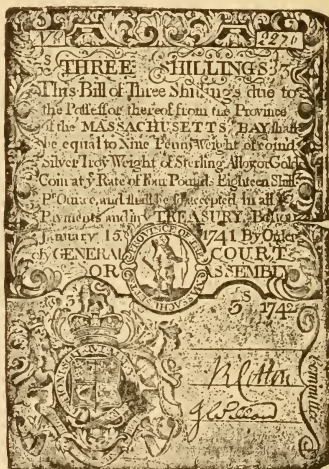 No 2270
THREE SHILLINGS
This Bill of Three Shillings due to
the Possessor thereof from the Province
of the MASSACHUSETTS BAY shall
be equal to Nine Penny Weight of coind
Silver Troy Weight of Sterling Alloy or Gold
Coin at ye Rate of Four Pounds Eighteen Shill
Pr Ounce, and shall be accepted in all
Payments and in ye TREASURY. Boston
January 15 1741 By Order
of GENERAL COURT
OR ASSEMBLY
3S 1742
Committee